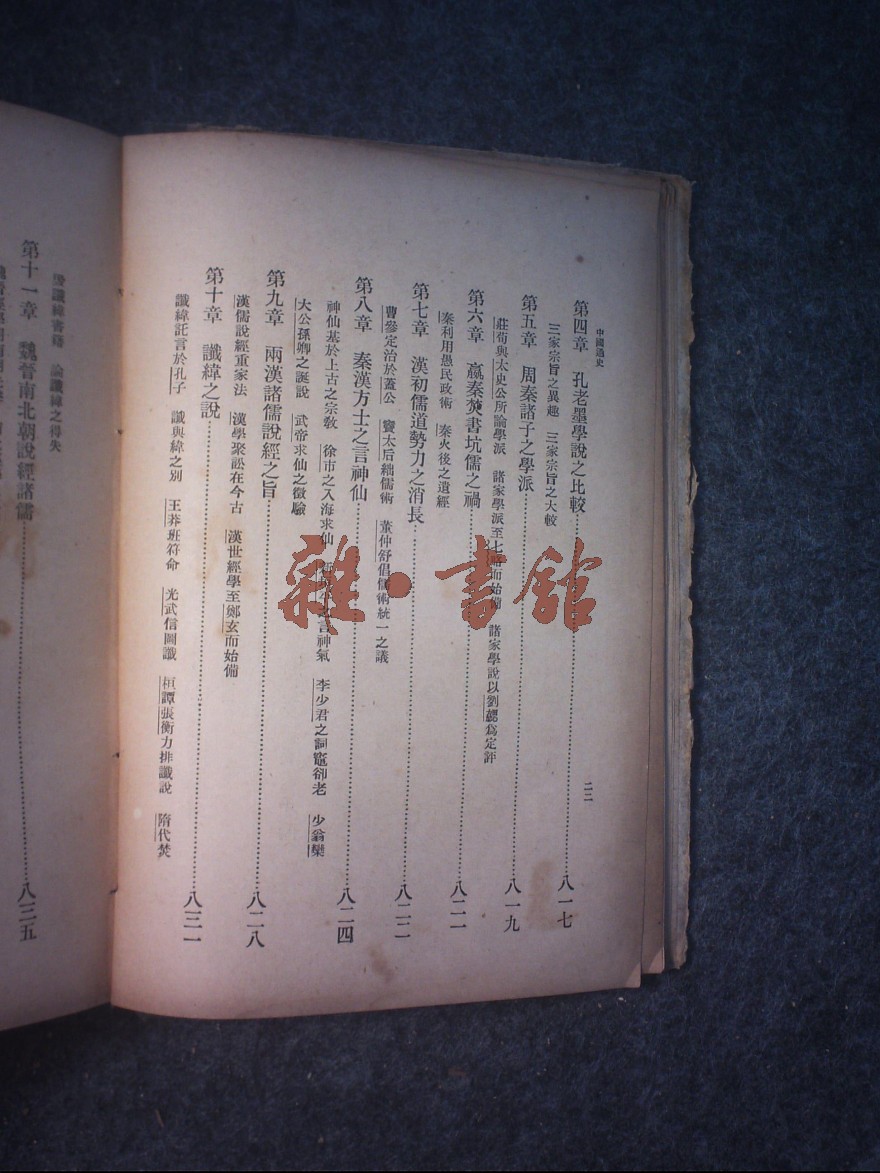 中國通史
二二
第四章　孔老墨學說之比較……八一七
三家宗旨之異趣　三家宗旨之大較
第五章　周秦諸子之學派……八一九
莊荀與太史公所論學派　諸家學派至七略而始備　諸家學說以劉勰為定評
第六章　嬴秦焚書坑儒之禍……八二一
秦利用愚民政術　秦火後之遺經
第七章　漢初儒道勢力之消長……八二二
曹參定治於蓋公　竇太后絀儒術　董仲舒倡儒術統一之議
第八章　秦漢方士之言神仙……八二四
神仙基於上古之宗教　徐市之入海求仙　之言神氣　李少君之祠竈卻老　少翁欒
大公孫卿之誕說　武帝求仙之徵驗
第九章　兩漢諸儒說經之旨……八二八
漢儒說經重家法　漢學聚訟在今古　漢世經學至鄭玄而始備
第十章　讖緯之說……八三一
讖緯託言於孔子　讖與緯之別　王莽班符命　光武信圖讖　桓譚張衡力排讖說　隋代焚
毀讖緯書籍　論讖緯之得失
第十一章　魏晉南北朝說經諸儒……八三五
雜·書館